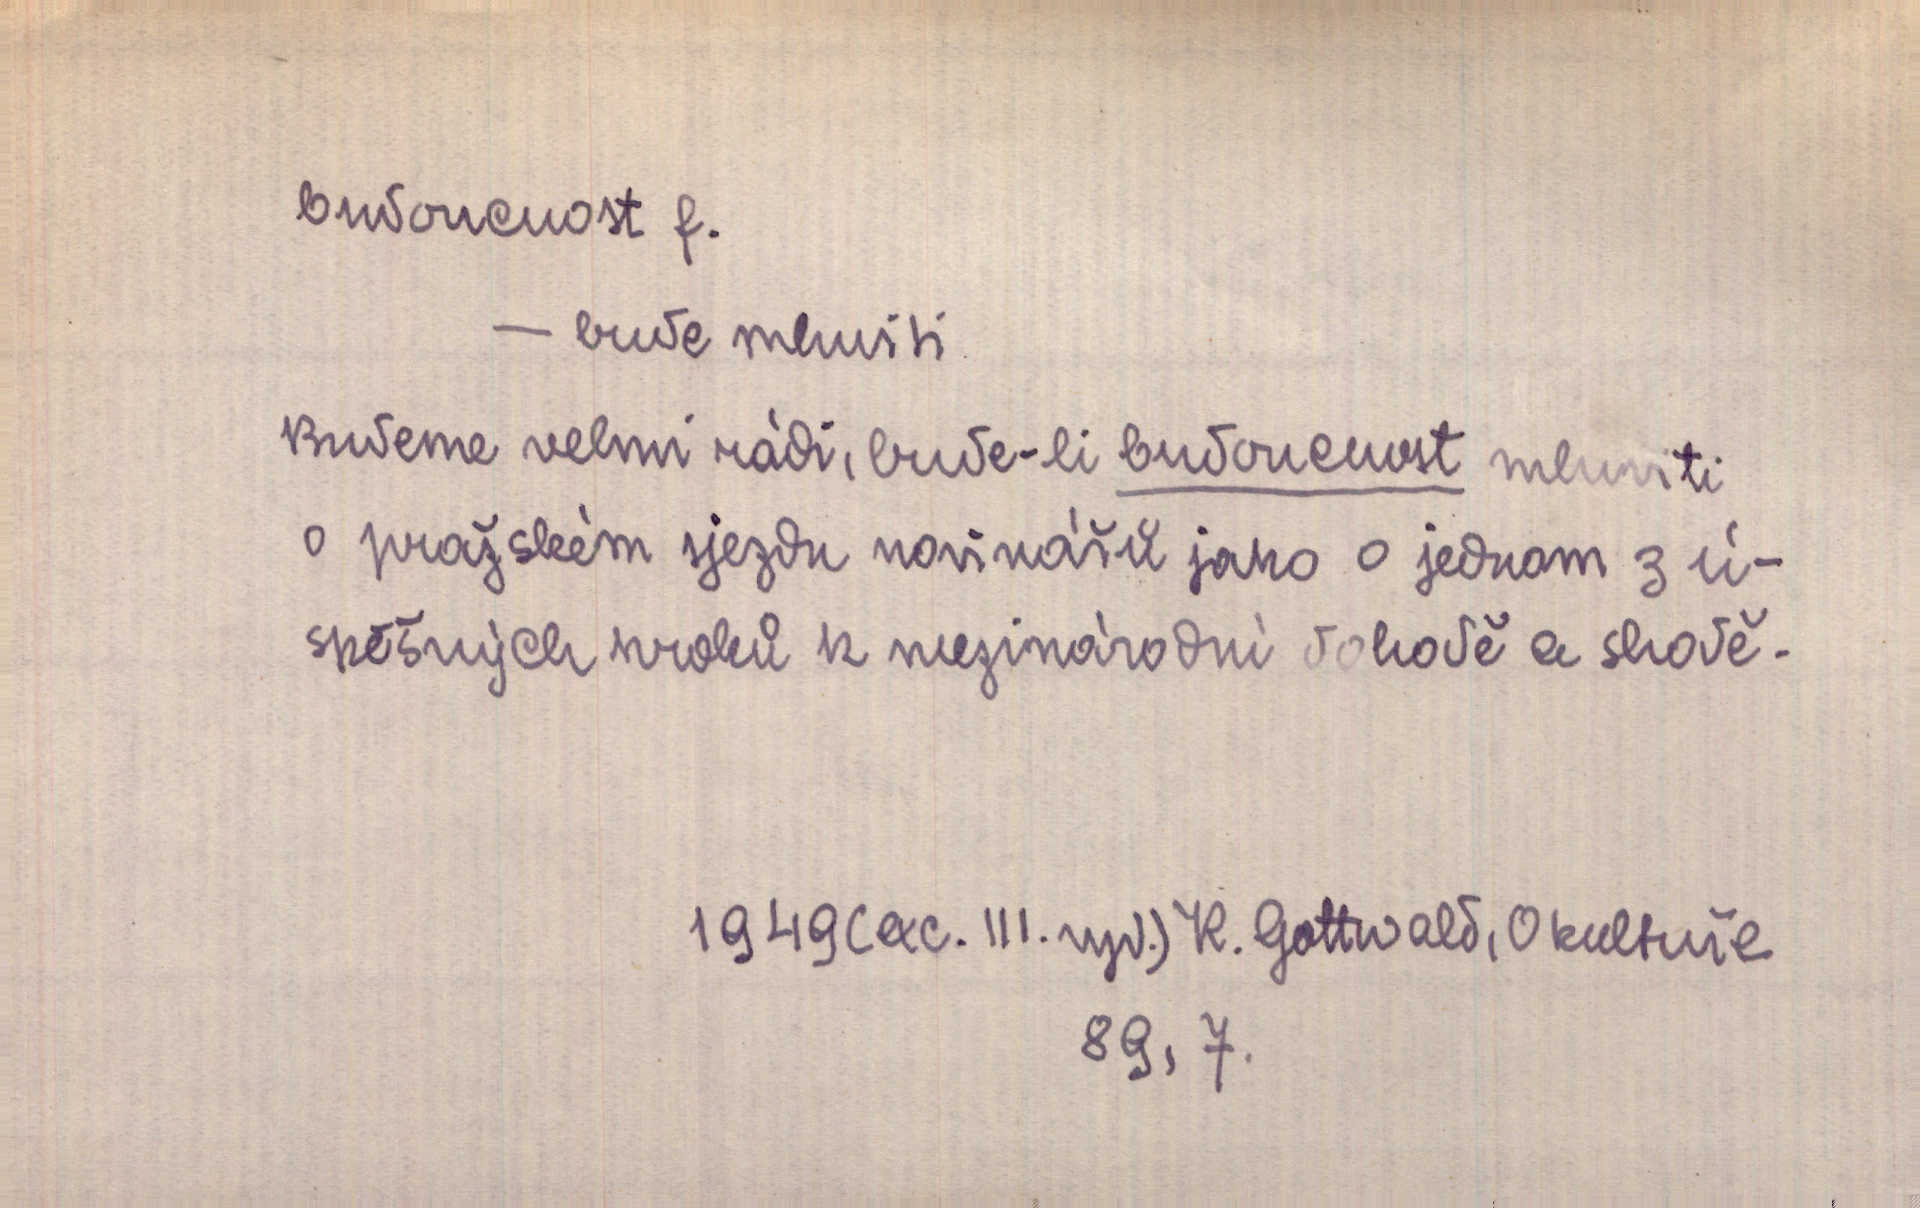 budoucnost f.
— bude mluviti
Budeme velmi rádi, bude-li budoucnost mluviti
o pražském sjezdu novinářů jako o jednom z ú-
spěšných kroků k mezinárodní dohodě a shodě.
1949 (ac. III. vyd.) K. Gottwald, O kultuře
89, 7.